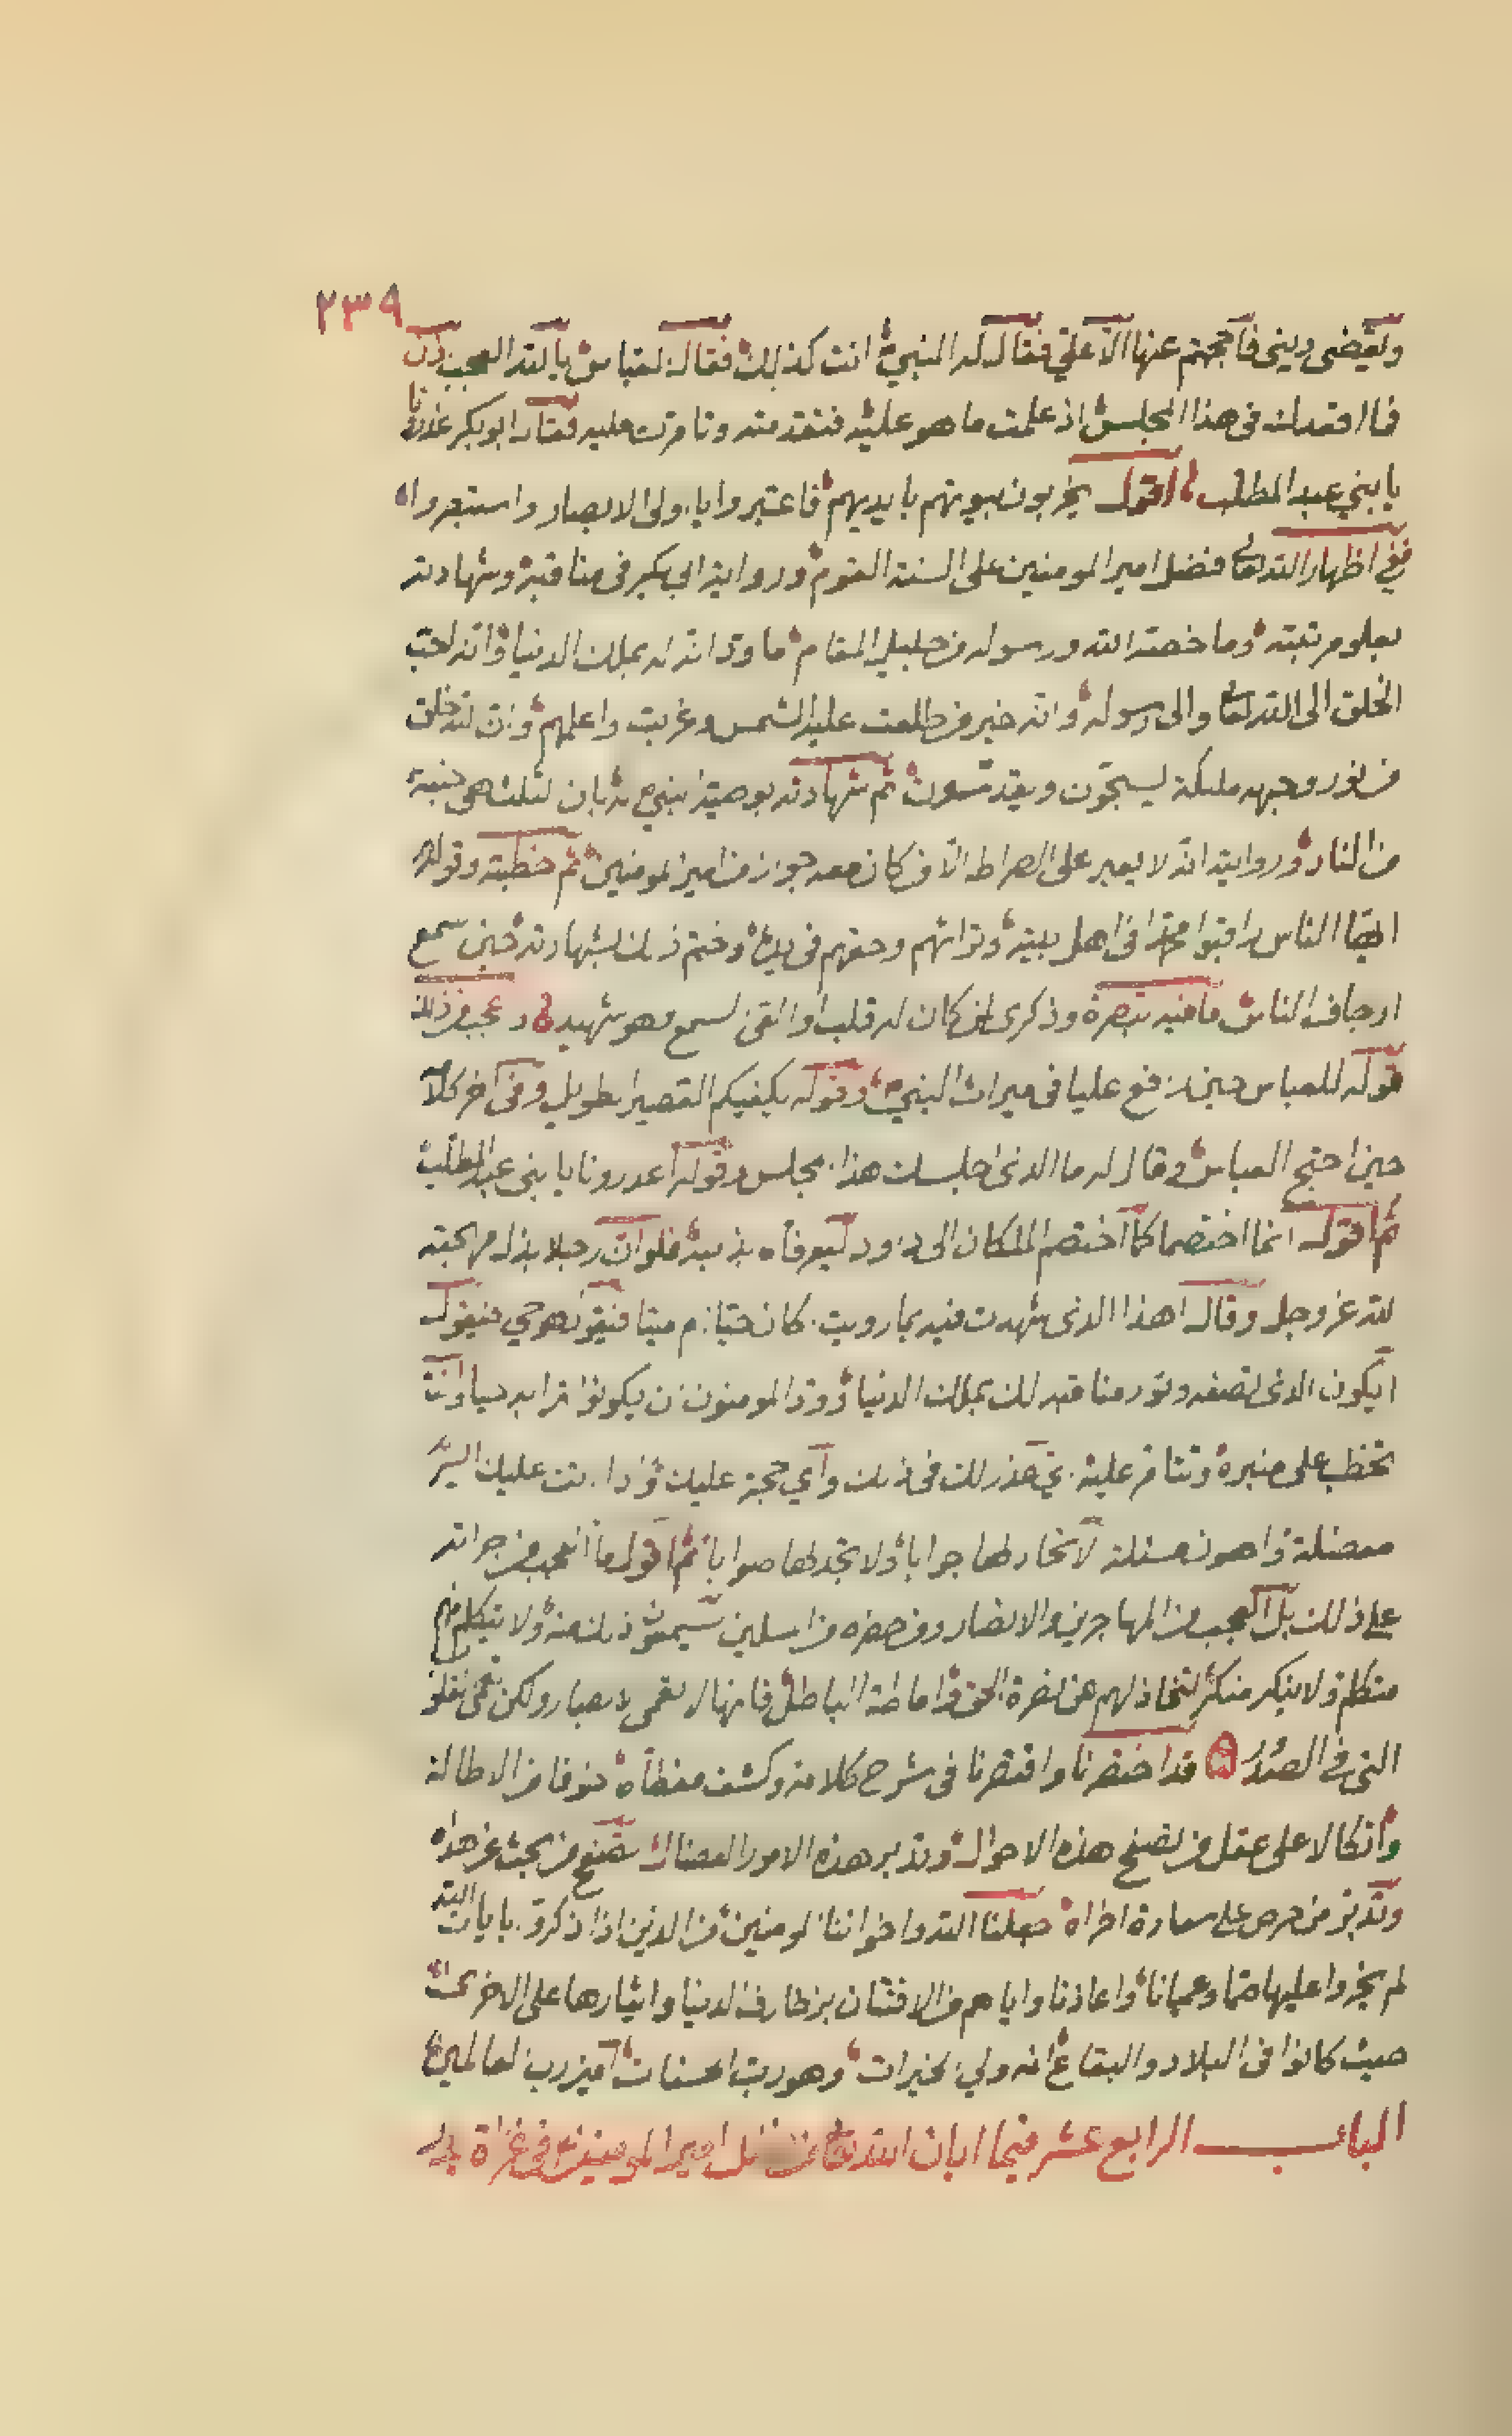 ٢٣٩
ويقضى ديني فاحجمتم عنها الا علي فقال له النبي انت كذلك فقال العباس يا لله العجب اذن
فما اقعدك في هذا المجلس اذ علمت ما هو عليه فتقدمته وتامرت عليه فقال ابو بكر
يا بني عبد المطلب اقول يخربون بيوتهم بايديهم فاعتبروا يا اولى الابصار
ففي اظهار الله تعالى فضل امير المومنين على السنة القوم ورواية ابي بكر في مناقبه وشهادته
بعلو مرتبته وما خصه الله ورسوله من جليل المقام ما ود انه له بملك الدنيا وانه احب
الخلق الى الله تعالى والى رسوله وانه خير من طلعت عليه الشمس وغربت واعلمهم وان لله خلق
من نور وجهه ملئكة يسبحون ويقدسون ثم شهادته بوصية النبي له بان لثلث هي
من النار وروايته انه لا يعبر على الصراط الا من كان معه جواز من امير المومنين ثم خطبته وقوله
ايها الناس راقبوا محمدا في اهل بيته وتراثهم وحقهم في يده وختم ذلك بشهادته حين سمع
ارجاف الناس ما فيه تبصرة وذكرى لمن كان له قلب او القى السمع وهو شهيد واعجب من ذلك
قوله للعباس حين رافع عليا في ميراث النبي وقوله يكفيكم القصير الطويل وفي اخر كلامه
حين احتج العباس وقال له ما الذى اجلسك هذا المجلس وقوله اعدرونا يا بني عبد المطلب
ثم اقول انما اختصما كما اختصم الملكان الى داود ليعرفاه ذنبه فلو ان رجلا بذل مهجته
لله عز وجل وقال اهذا الذى شهدت فيه بما رويت كان حيا ام ميتا فيقول هو حي فيقول
ايكون الذى تصفه وتود مناقبه لك بملك الدنيا وود المومنون ان يكونوا قرابه حيا وانت
تخطب على منبره وتتامر عليه اي عذر لك في ذلك واي حجة عليك
معضلة واهون مسئلة لا تحار لها جوابا ولا تجد لها صوابا ثم اقول ما العجب من جراته
على ذلك بل العجب من المهاجرين والانصار ومن حضره من المسلمين يسمعون ذلك منه ولا يتكلم منهم
متكلم ولا ينكر منكر لتخاذلهم عن نصرة الحق واماطة الباطل فانها لا تعمى الابصار ولكن تعمى القلوب
التي في الصدور قد اختصرنا واقتصرنا في شرح كلامه وكشف مغطاه خوفا من الاطالة
واتكالا على عقل من تصفح هذه الاحوال وتدبر هذه الامور العضال يقنع من بحث عن هداه
وتدبر من حرص على سعادة اخراه جعلنا الله واخواننا المومنين من الذين اذا ذكروا بايات الله
لم يخروا عليها صما وعميانا واعاذنا واياهم من الافتتان بزخارف الدنيا وايثارها على الاخرى
حيث كانوا في البلاد والبقاع انه ولي الخيرات وهو رب الحسنات امين رب العالمين
الباب الرابع عشر فيما ابان الله تعالى من فضل امير المومنين في غزاة بدر